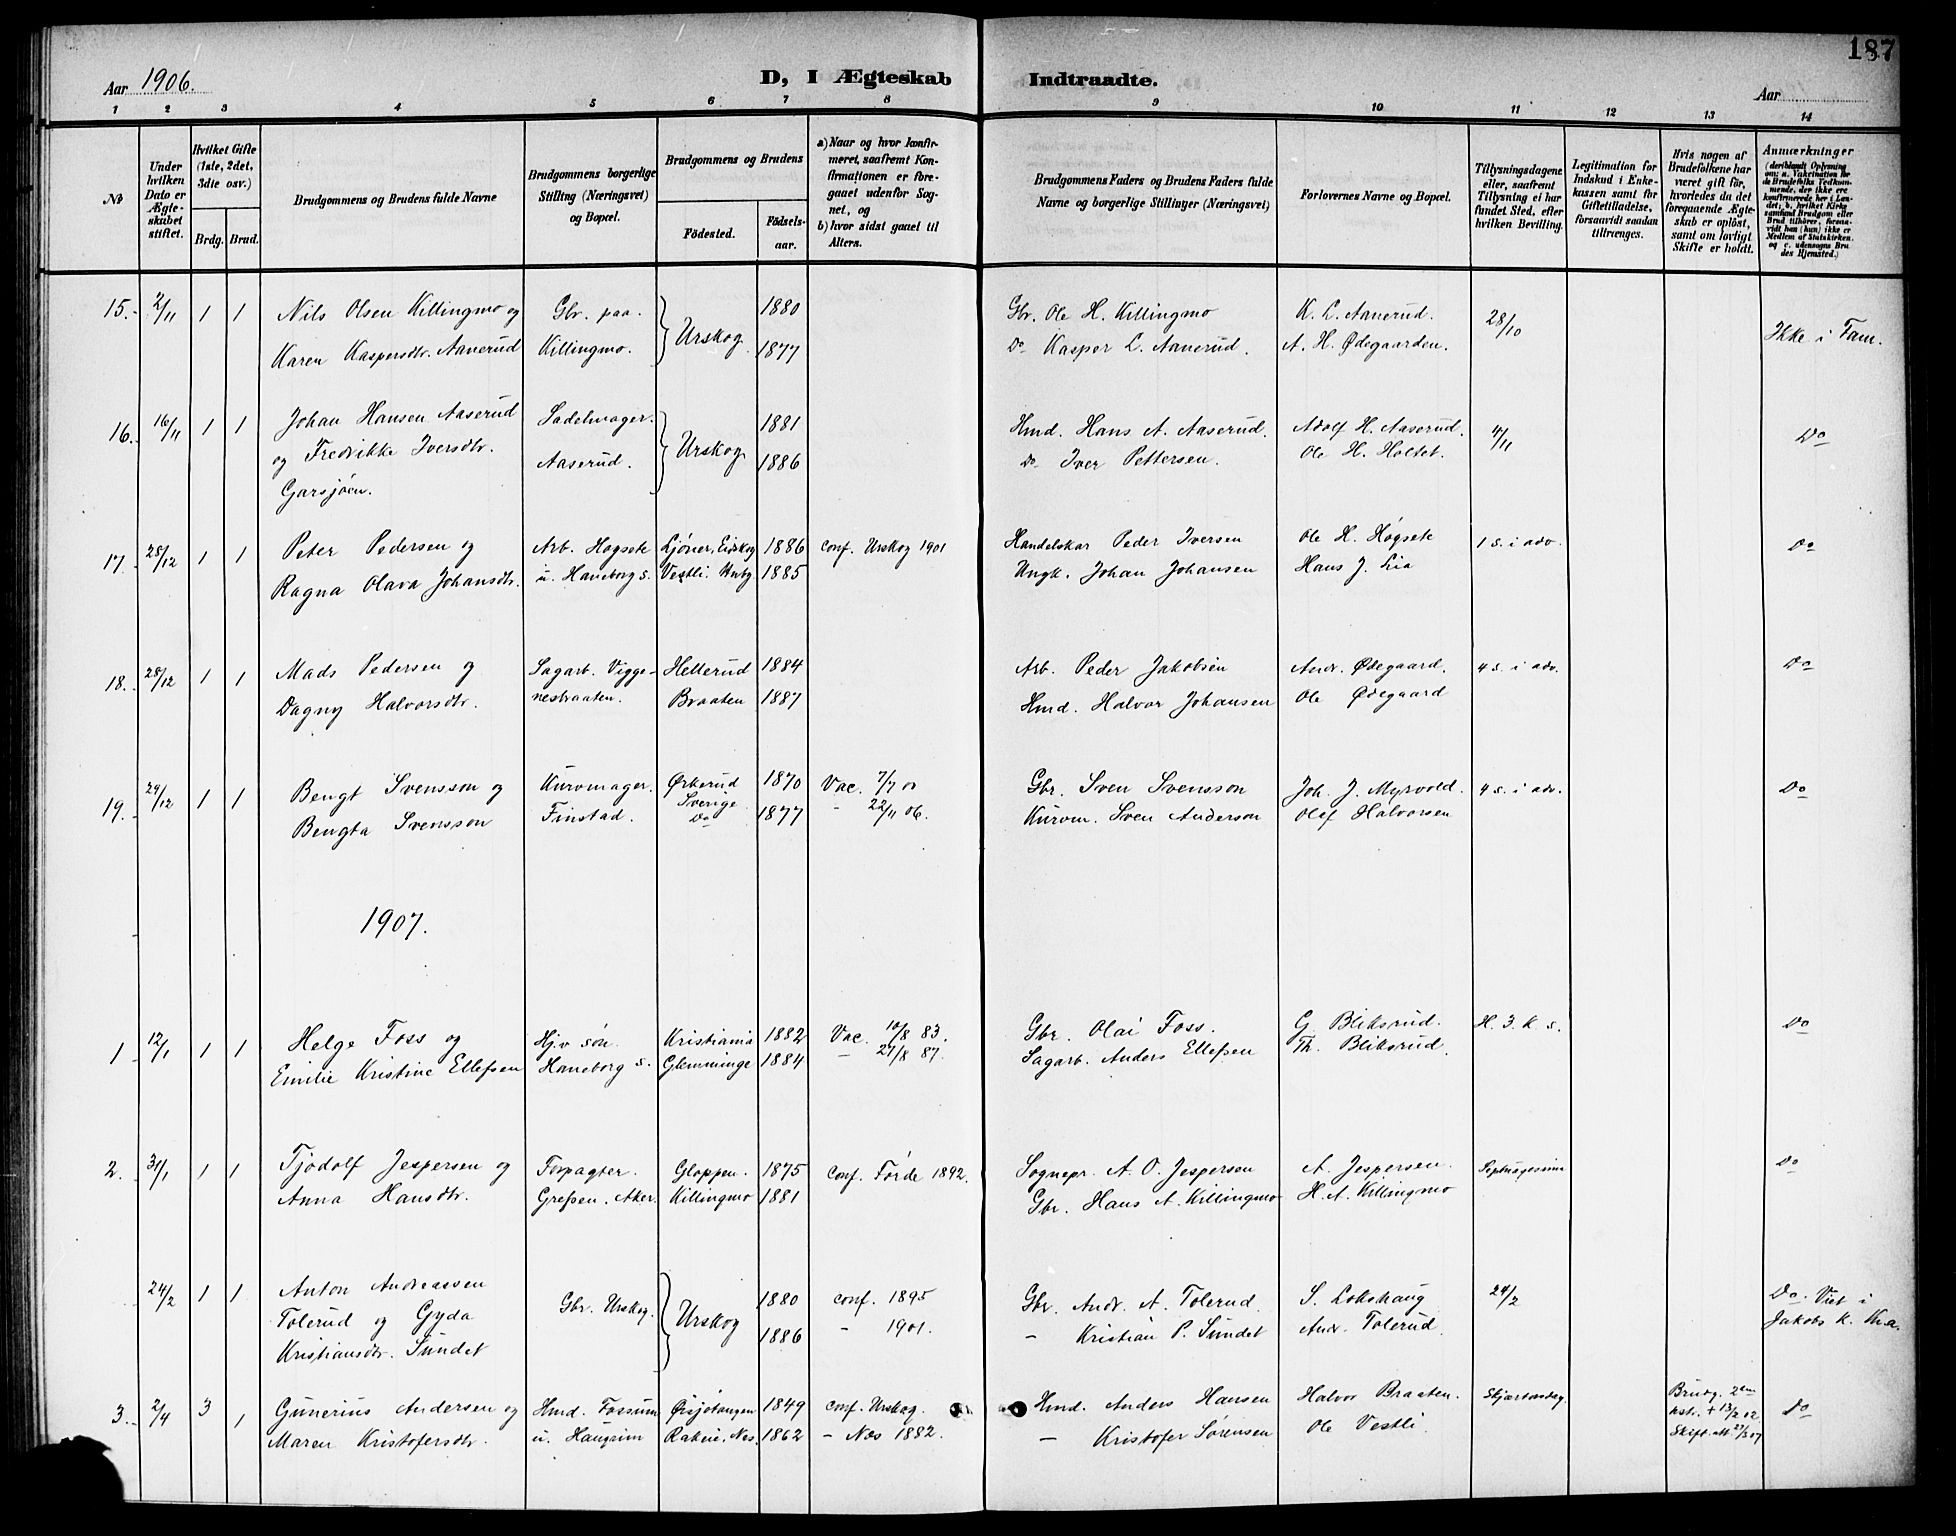 187
Aar 1906.
D, I Ægteskab Indtraadte.
Aar
1 2 3 4 5 6 7 8 9 10 11 12 13 14
No
Under hvilken Dato er Ægteskabet stiftet.
Hvilket Gifte (1ste, 2det, 3die osv.)
Brdg. Brud.
Brudgommens og Brudens fulde Navne
Brudgommens borgerlige Stilling (Næringsvei) og Bopæl.
Brudgommens og Brudens
Födested. Födselsaar.
a) Naar og hvor konfirmeret, saafremt Konfirmationen er foregaaet udenfor Sognet, og
b) hvor sidst gaaet til Alters.
Brudgommens Faders og Brudens Faders fulde Navne og borgerlige Stillinger (Næringsvei)
Forlovernes Navne og Bopæl.
Tillysningsdagene eller, saafremt Tillysning ei har fundet Sted, efter hvilken Bevilling.
Legitimation for Indskud i Enkekassen samt for Giftetilladelse, forsaavidt saadan tiltrænges.
Hvis nogen af Brudefolkene har været gift før, hvorledes da det foregaaende Ægteskab er oplöst, samt om lovligt Skifte er holdt.
Anmærkninger (deriblandt Oplysning om: a. Vakcination for de Brudefolks Vedkommende, der ikke ere konfirmerede her i Landet; b. hvilket Kirkesamfund Brudgom eller Brud tilhører, forsaavidt han (hun) ikke er Medlem af Statskirken, og c. udensogns Brudes Hjemsted.)
15. 2/11 1 1 Nils Olsen Killingmo og Gbr. paa 1880 Gbr. Ole H. Killingmo K. L. Aanerud. 28/10 Ikke i Fam.
Karen Kaspersdtr. Aanerud Killingmo. Urskog 1877 Do Kasper L. Aanerud. A. H. Ødegaarden.
16. 16/11 1 1 Johan Hansen Aaserud Sadelmager. 1881 Hmd. Hans A. Aaserud. Adolf H. Aaserud. 4/11 Do
og Fredrikke Iversdtr. Aaserud. Urskog 1886 Do Iver Pettersen. Ole H. Holtet.
Garsjøen.
17. 28/12 1 1 Peter Pedersen og Arb. Høgsete Ljöner, Eidskog 1886 conf. Urskog 1901 Handelskar Peder Iversen Ole H. Høgsete 1 s. i adv. Do
Ragna Olava Johansdtr. u. Haneborg s. Vestli. 1885 Ungk. Johan Johansen Hans J. Lia
18. 28/12 1 1 Mads Pedersen og Sagarb. Vigge- Hellerud 1884 Arb. Peder Jakobsen Andr. Ødegaard. 4 s. i adv. Do
Dagny Halvorsdtr. nesbraaten. Braaten 1887 Hmd. Halvor Johansen Ole Ødegaard
19. 29/12 1 1 Bengt Svensson og Kurvmager. Ørkerud 1870 Vac. 7/7 Gbr. Sven Svensson Joh. J. Myrvold. 4 s. i adv. Do
Bengta Svensson Finstad. Sverige Do 1877 - 22/11 06. Kurvm. Sven Anderson Olaf Halvorsen
1907.
1 12/1 1 1 Helge Foss og Hjv søn. Kristiania 1882 Vac. 10/8 83. Gbr. Olai Foss. G. Bliksrud. H. 3. k. s. Do
Emilie Kristine Ellefsen Haneborg s. Glemminge 1884 - 27/8 87. Sagarb. Anders Ellefsen Th. Bliksrud.
2. 31/1 1 1 Tjodolf Jespersen og Forpagter. Gloppen. 1875 conf. Førde 1892. Sognepr. A. O. Jespersen A. Jespersen. Septuagesima Do
Anna Hansdtr. Grefsen. Aker. Killingmo 1881 Gbr. Hans A. Killingmo H. A. Killingmo
24/2 1 1 Anton Andreassen Gbr. Urskog. 1880 conf. 1895 Gbr. Andr. A. Tolerud. S. Lokshaug 24/2 Do. Viet i
Tolerud og Gyda Urskog 1886 - 1901. - Kristian P. Sundet Andr. Tolerud. Jakobs K. Kr.a.
Kristiansdtr. Sundet
3. 2/4 3 1 Gunerius Andersen og Hmd. Fossum Ørsjøtangen 1849 conf. Urskog. Hmd. Anders Hansen Halvor Braaten. Skjærtorsdag Brudg. 2den hstr. + 13/2 02. Do
Maren Kristofersdtr. u. Haugrim Rakeie, Nes. 1862 - Nes 1882. - Kristofer Sørensen Ole Vestli. Skift. 07